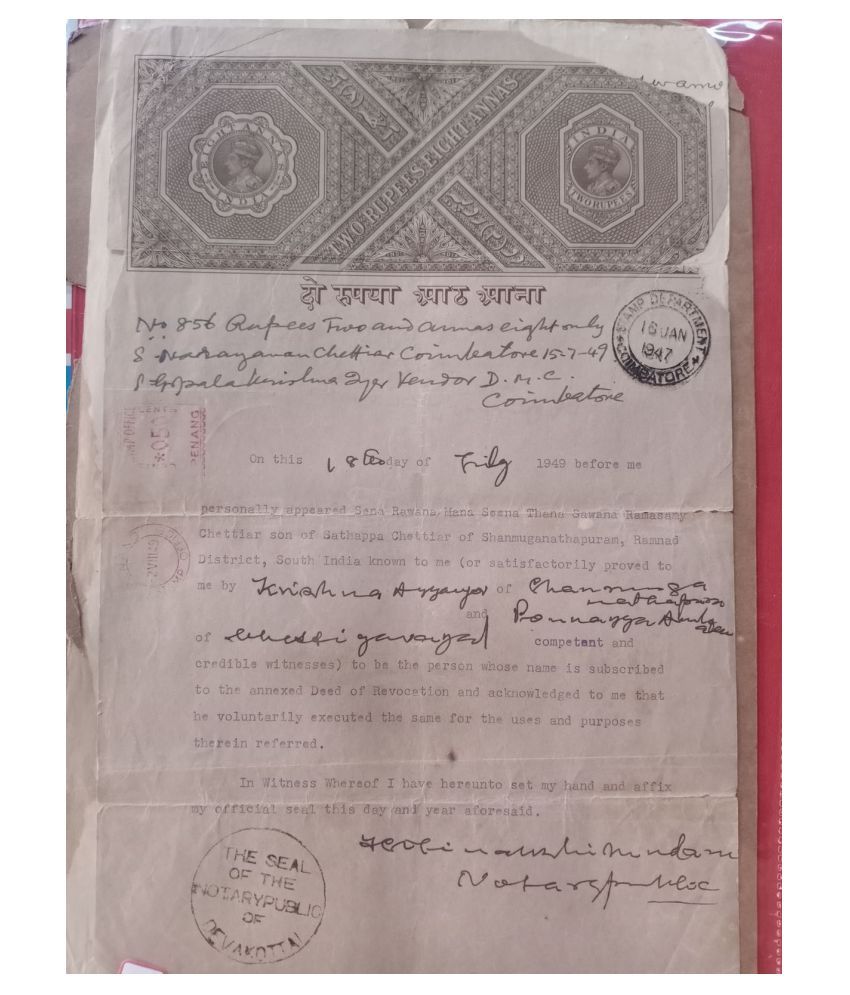 EIGHT ANNAS
INDIA
TWO-RUPEES.EIGHT ANNAS
INDIA
TWO RUPEES
दो रुपया आठ आना
No 856 Rupees Two and annas eight only
S. Narayanan Chettiar Coimbatore 15-7-49
S Gopalakrishna Iyer Vendor D.M.C.
Coimbatore
STAMP DEPARTMENT
16 JAN
1947
COIMBATORE
PENANG
On this 18th day of July 1949 before me
personally appeared Sena Rawana Mana Seena Thana Sawana Ramasamy
Chettiar son of Sathappa Chettiar of Shanmuganathapuram, Ramnad
District, South India known to me (or satisfactorily proved to
me by Krishna Ayyangar of
and Ponnayya
of competent and
credible witnesses) to be the person whose name is subscribed
to the annexed Deed of Revocation and acknowledged to me that
he voluntarily executed the same for the uses and purposes
therein referred.
In Witness Whereof I have hereunto set my hand and affix
my official seal this day and year aforesaid.
Notary public
THE SEAL
OF THE
NOTARYPUBLIC
OF
DEVAKOTTAI